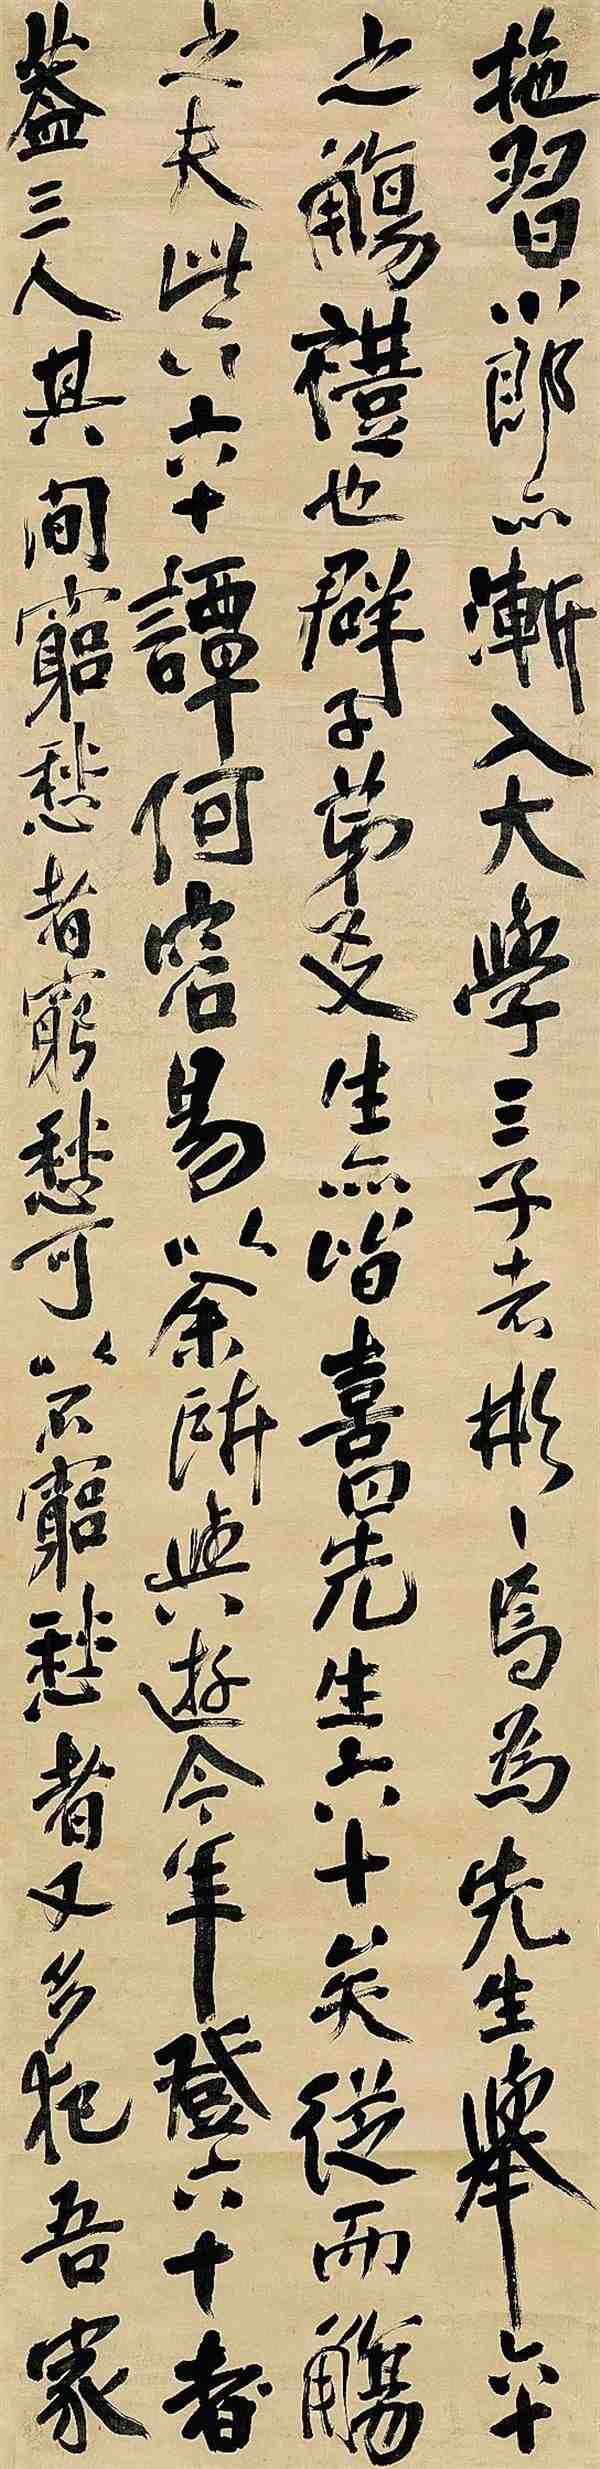 施習小郎亦漸入大學三子者彬〻焉為先生舉六十
之觴禮也群子弟友生亦皆喜曰先生六十矣從而觴
之夫此六六十譚何容易答所與遊今年登六十者
蓋三人其間窮愁者窮愁可以不窮愁者又多犯吾家